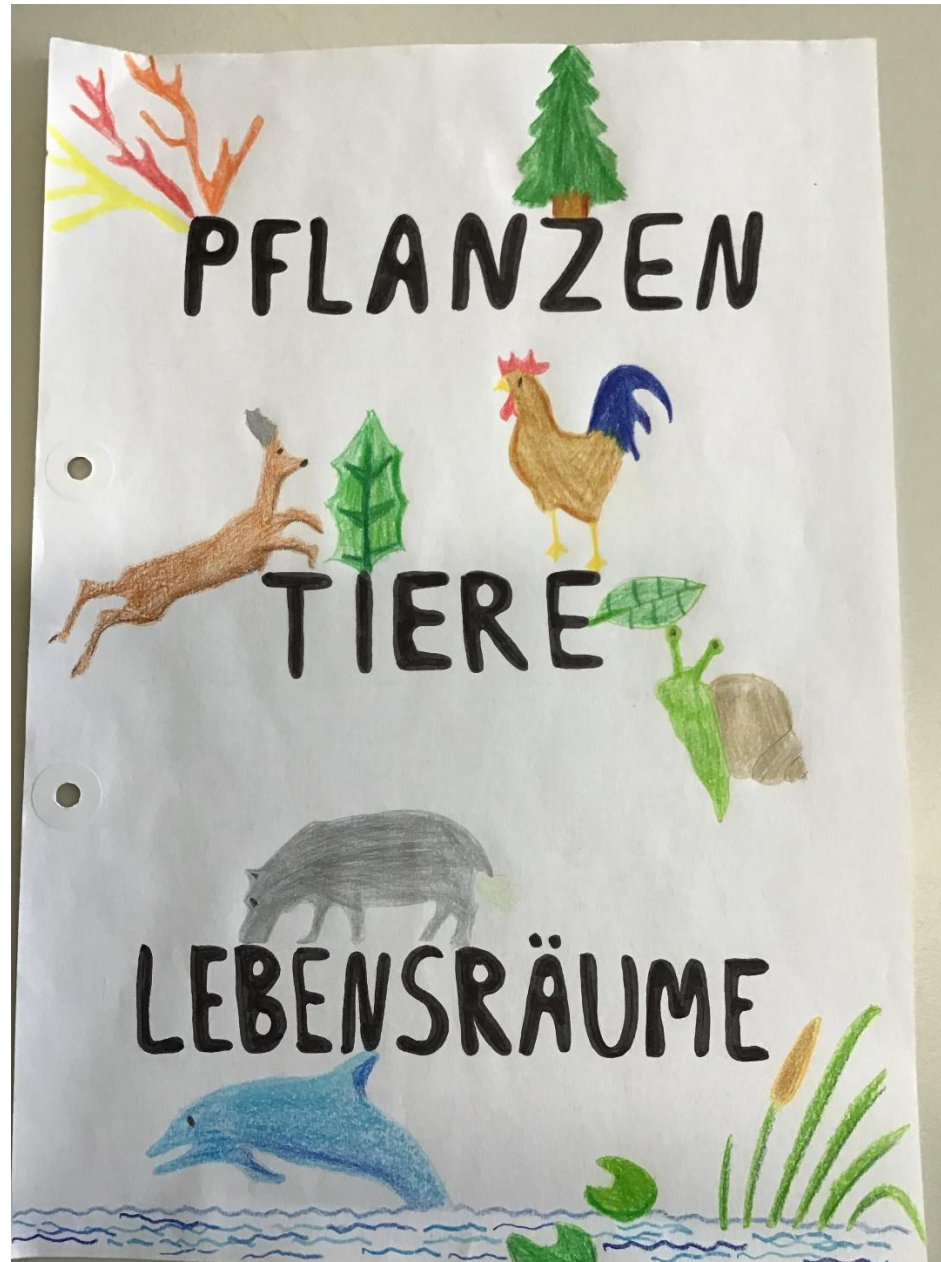 PFLANZEN
TIERE
LEBENSRÄUME